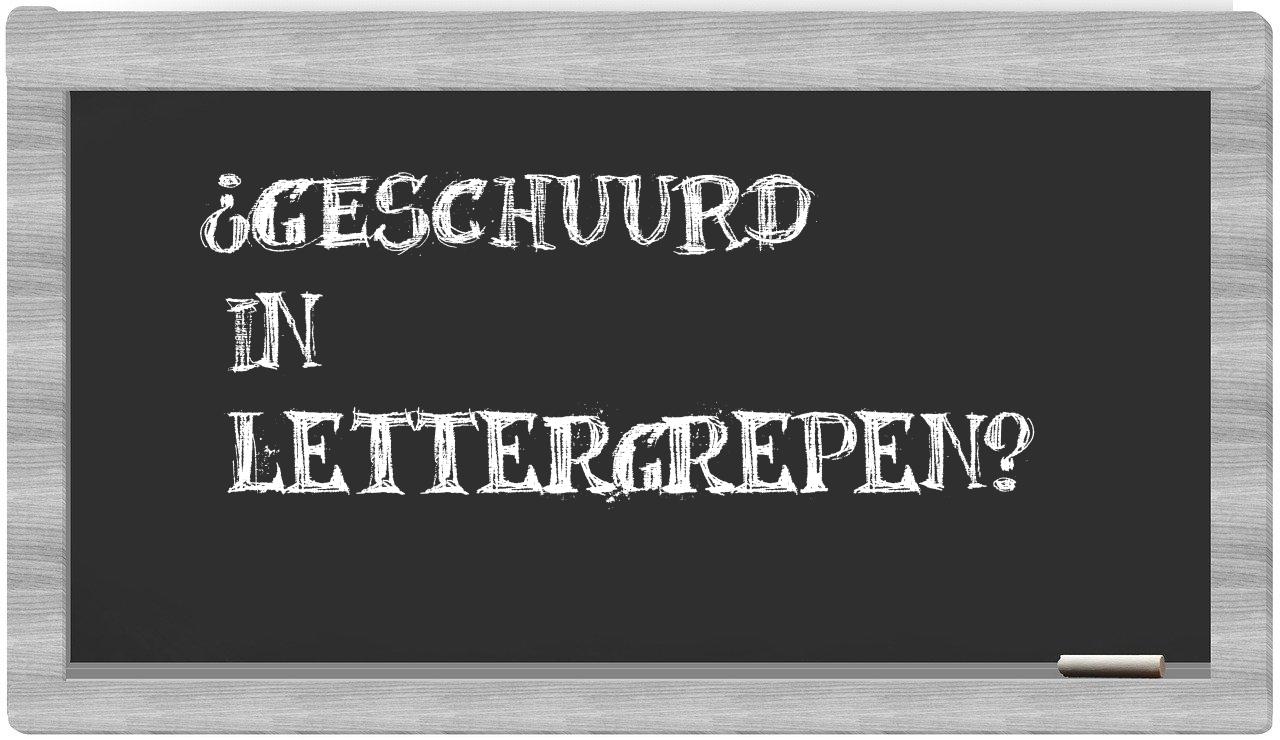 ¿GESCHUURD
IN
LETTERGREPEN?